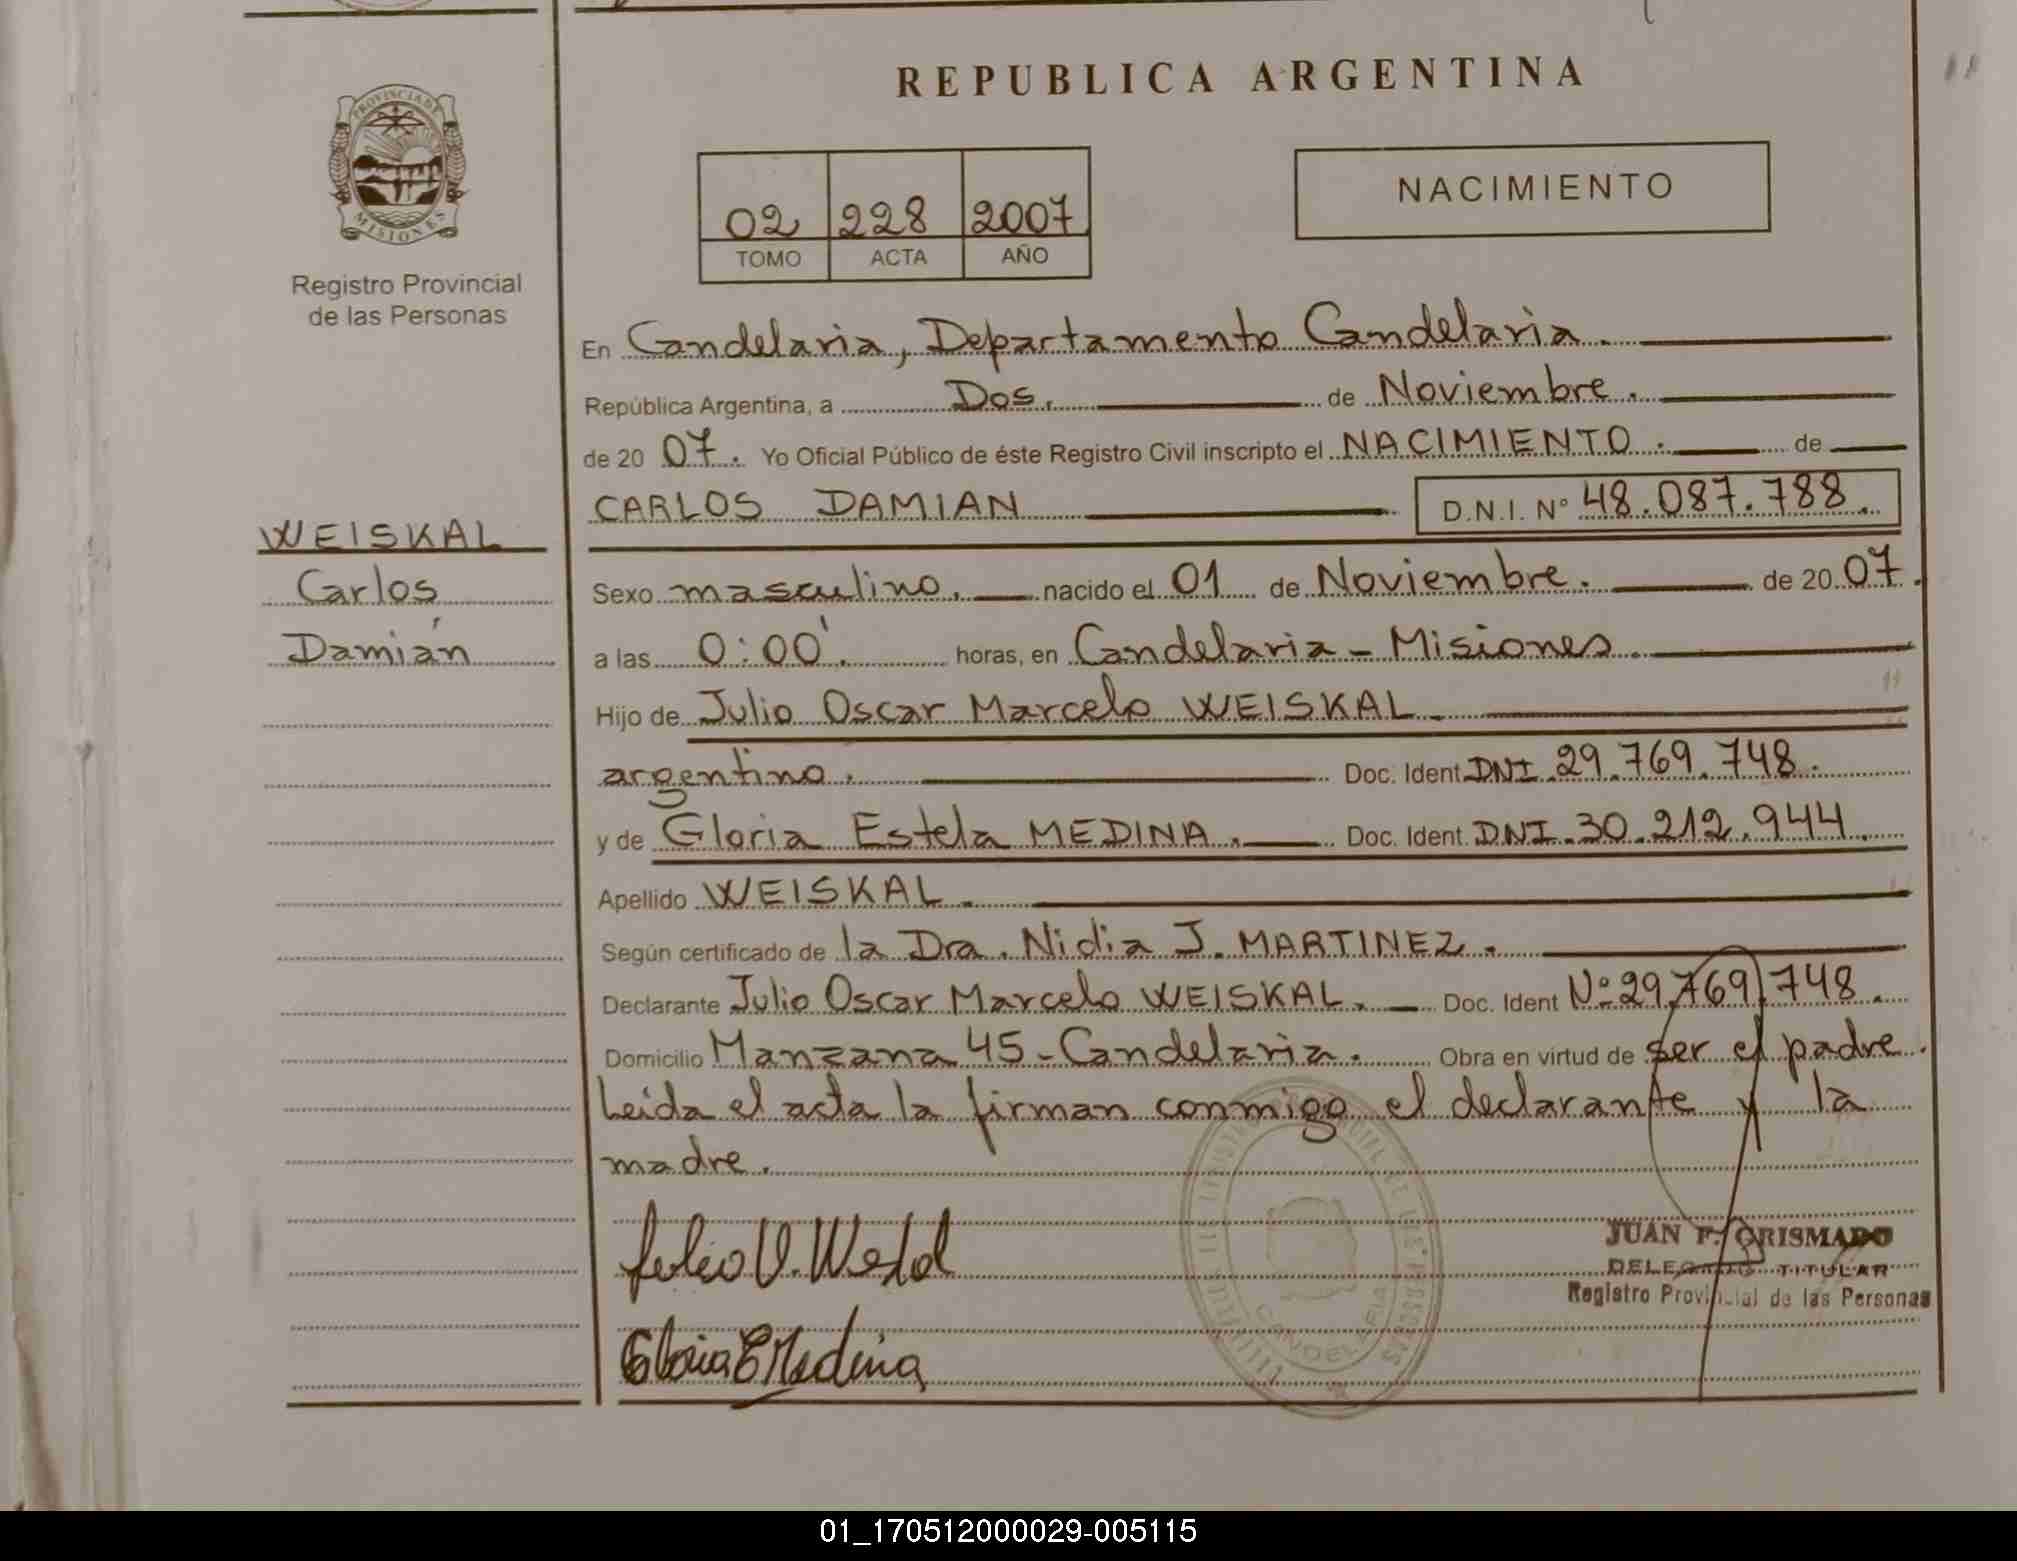 REPUBLICA ARGENTINA
PROVINCIA DE
MISIONES
Registro Provincial
de las Personas
NACIMIENTO
02 228 2007
TOMO ACTA AÑO
WEISKAL
Carlos
Damián
En Candelaria, Departamento Candelaria.
República Argentina, a Dos. de Noviembre.
de 20 07. Yo Oficial Público de éste Registro Civil inscripto el NACIMIENTO. de
CARLOS DAMIAN D.N.I. Nº 48.087.788.
Sexo masculino. nacido el 01 de Noviembre. de 20 07.
a las 0:00'. horas, en Candelaria - Misiones
Hijo de Julio Oscar Marcelo WEISKAL.
argentino. Doc. Ident. DNI. 29.769.748.
y de Gloria Estela MEDINA. Doc. Ident. DNI. 30.212.944.
Apellido WEISKAL.
Según certificado de la Dra. Nidia J. MARTINEZ.
Declarante Julio Oscar Marcelo WEISKAL. Doc. Ident Nº 29.769.748.
Domicilio Manzana 45 - Candelaria. Obra en virtud de ser el padre.
Leída el acta la firman conmigo el declarante y la
madre.
JUAN F. CRISMADO
DELEGADO TITULAR
Registro Provincial de las Personas
Gloria E Medina
CANDELARIA
01_170512000029-005115